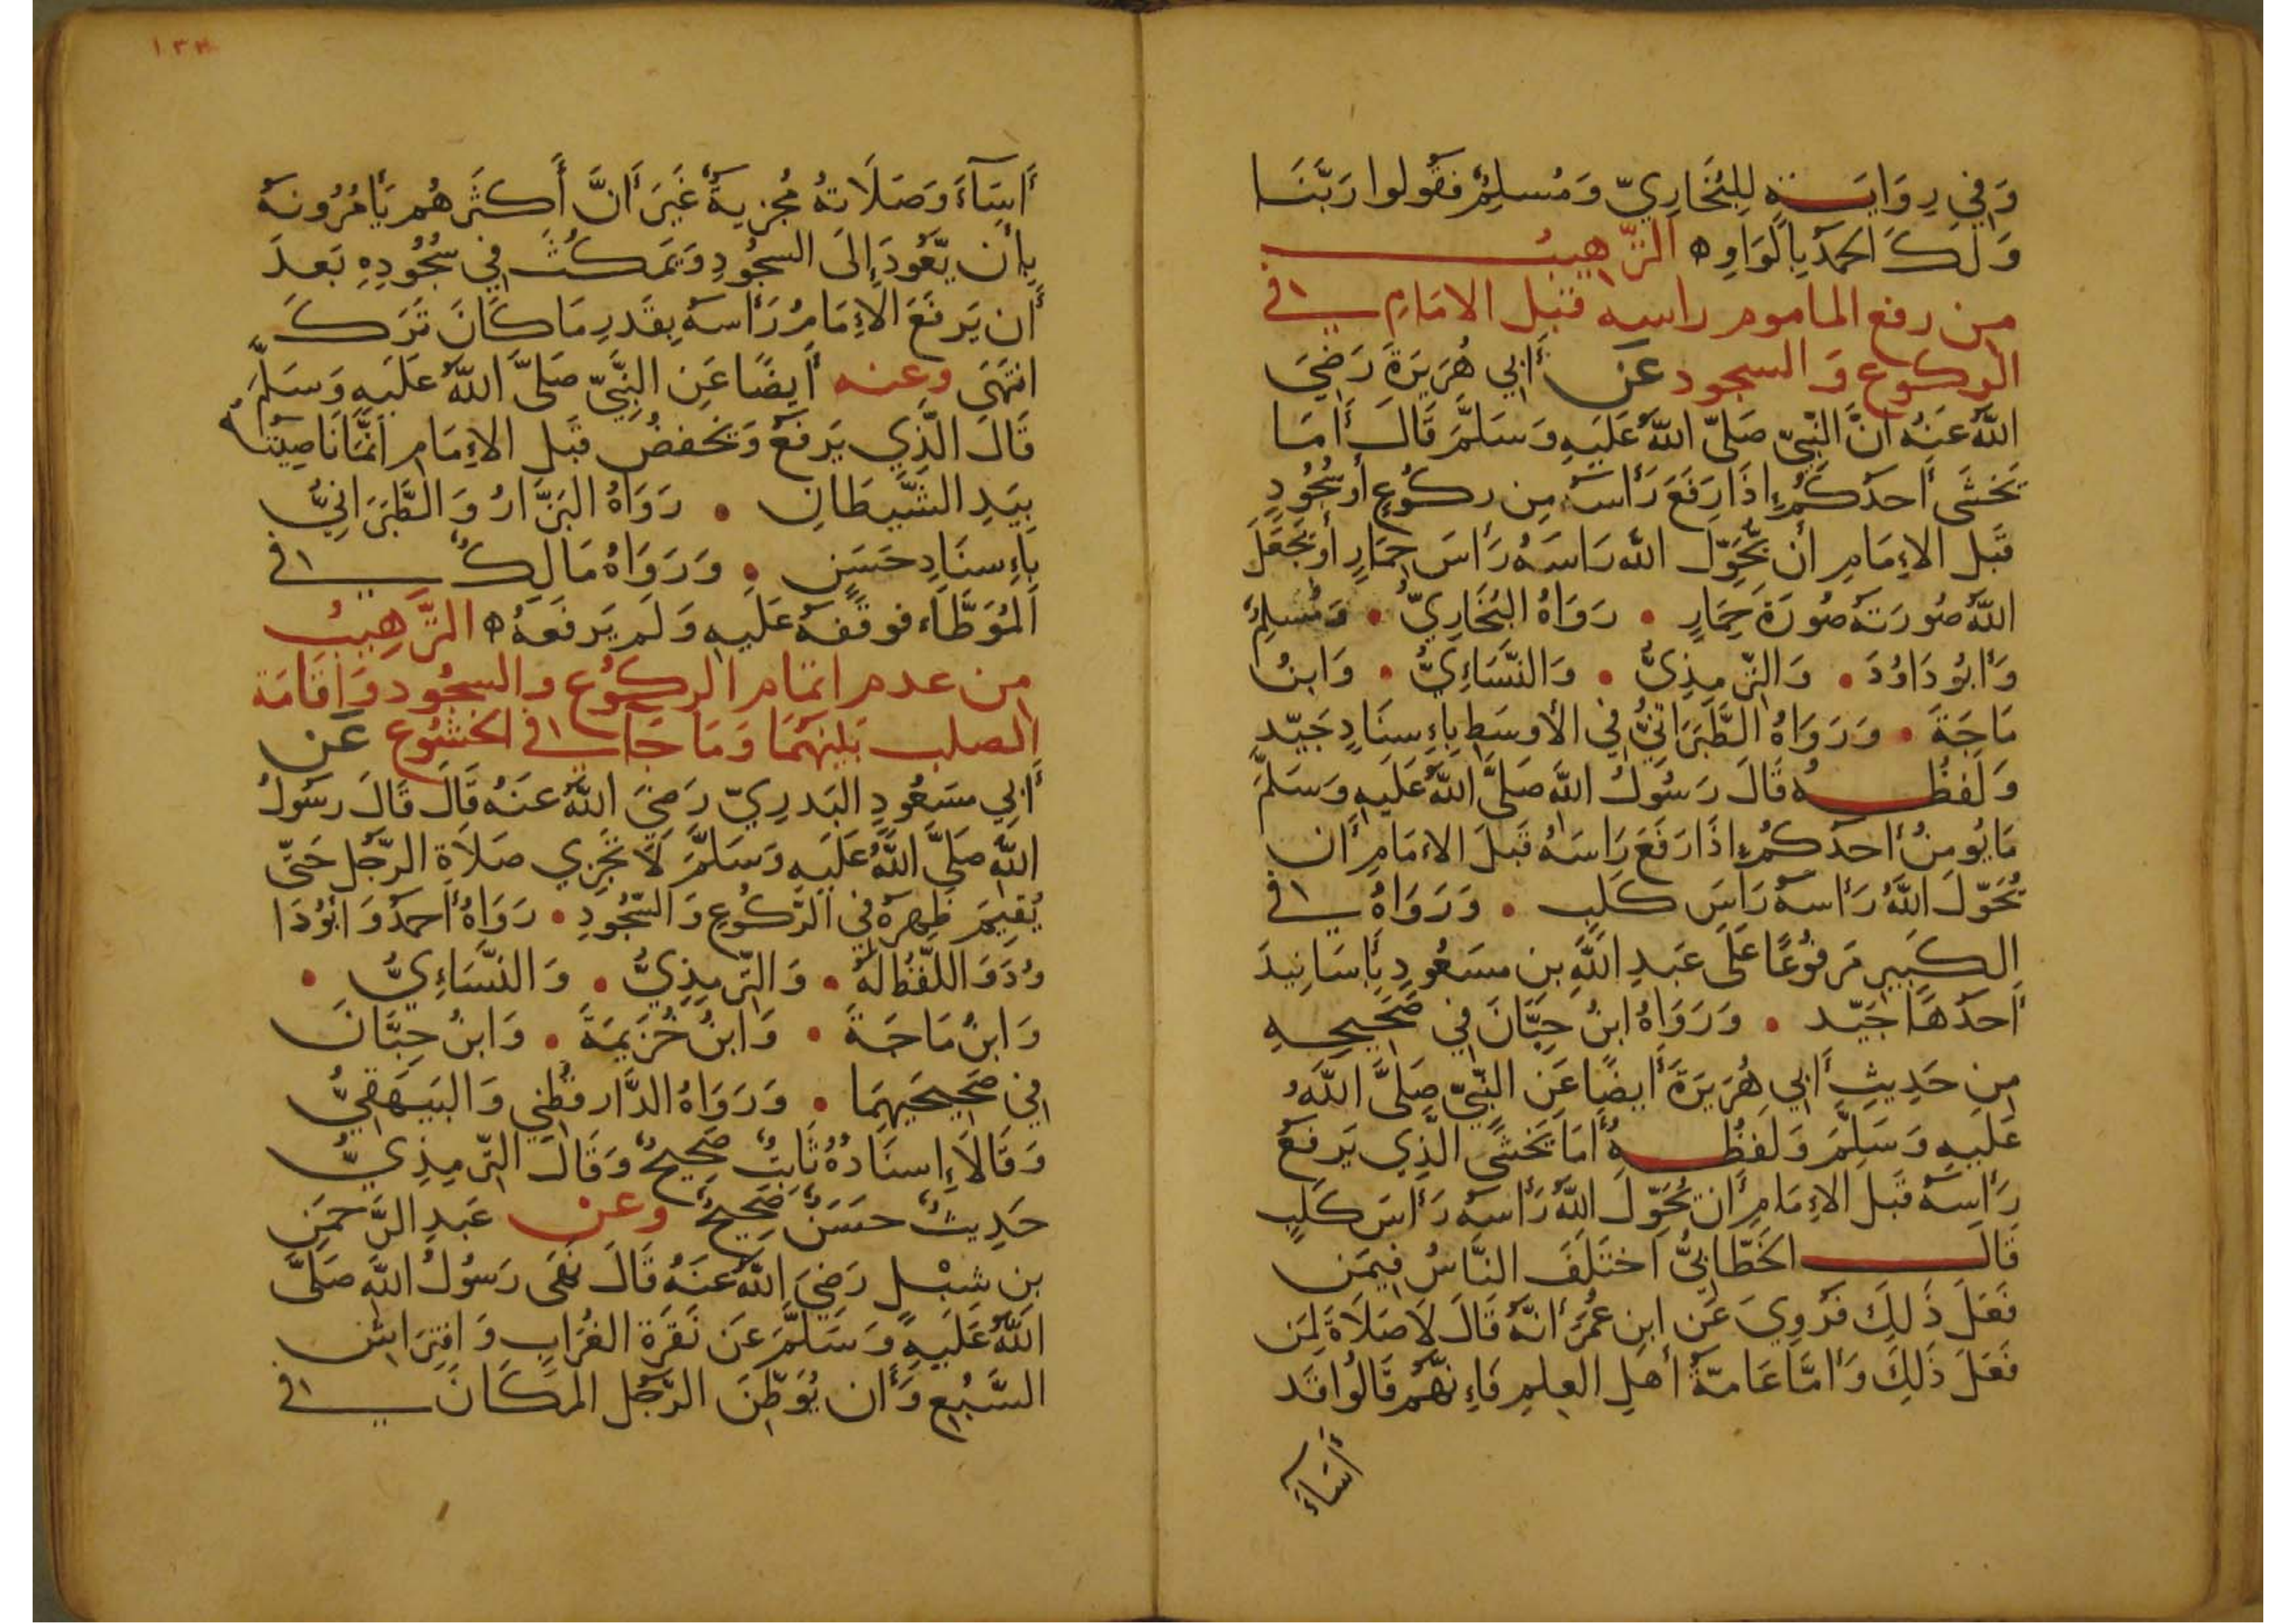 وَفِي رِوَايَةٍ لِلبُخَارِيّ وَمُسلِمٌ فَقُولوا رَبَّنَا
وَلَكَ الحَمدُ بِالوَاوِ ه الترهيب
من رفع الماموم راسه قبل الامام في
الركوع والسجود عَن أَبي هُرَيرَةَ رَضِيَ
اللهُ عَنهُ أنَّ النَّبِيّ صَلَّى اللهُ عَلَيهِ وَسَلَّمَ قَالَ أَمَا
يَخشَى أَحَدُكُم إِذَا رَفَعَ رَأسَهُ مِن رُكُوعٍ أَو سُجُودٍ
قَبلَ الإِمَامِ أَن يُحَوِّلَ الله رَاسَهُ رَأسَ حِمَارٍ أَو يَجعَلَ
اللهُ صُورَتَهُ صُورَةَ حِمَارٍ • رَوَاهُ البُخَارِيُّ • وَمُسلِمٌ
وَأَبُو دَاوُدَ • وَالتّرمِذِيُّ • وَالنَّسَاءِيُّ • وَابنُ
مَاجَةَ • وَرَوَاهُ الطَّبَرَانِيُّ فِي الأَوسَطِ بِإِسنَادٍ جَيّدٍ
وَلَفظُهُ قَالَ رَسُولُ اللهِ صَلَّى اللهُ عَلَيهِ وَسَلَّمَ
مَا يُومِنُ أَحَدُكُم إِذَا رَفَعَ رَاسَهُ قَبلَ الإمَامِ أَن
يُحَوّلَ اللهُ رَأسَهُ رَأسَ كَلبٍ • وَرَوَاهُ في
الكَبِيرِ مَرفُوعًا عَلَى عَبدِ اللهِ بنِ مَسعُودٍ بِأَسَانِيدَ
أَحَدُهَا جَيّد • وَرَوَاهُ ابنُ حِبَّانَ فِي صَحِيحِهِ
مِن حَدِيثِ أَبِي هُرَيرَةَ أَيضًا عَنِ النَّبِيّ صَلَّى اللهُ
عَلَيهِ وَسَلَّمَ وَلَفظُهُ أَمَا يَخشَى الَّذِي يَرفَعُ
رَأسَهُ قَبلَ الإِمَامِ أَن يُحَوّلَ اللهُ رَأسَهُ رَأسَ كَلبٍ
قَالَ الخَطَّابِيُّ اختَلَفَ النَّاسُ فِيمَن
فَعَلَ ذَلِكَ فَرُوِيَ عَن ابنِ عُمَرَ أَنَّهُ قَالَ لَا صَلَاةَ لِمَن
فَعَلَ ذَلِكَ وَأَمَّا عَامَّةُ أَهلِ العِلمِ فَإِنَّهُم قَالُوا قَد
أَسَاءَ
١٣٣
أَسَآءَ وَصَلَاتهُ مُجزِيةٌ غَيرَ أَنَّ أَكثَرَهُم يَأمُرُونَهُ
بِأَن يَّعُودَ إِلَى السجُودِ وَيَمكُثَ فِي سُجُودِهِ بَعدَ
أَن يَرفَعَ الإِمَامُ رَأسَهُ بِقَدرِ مَا كَانَ تَرَكَ
انتَهَى وعنه أَيضًا عَنِ النَّبِيّ صَلَّى اللهُ عَلَيهِ وَسَلَّمَ
قَالَ الّذِي يَرفَعُ وَيَخفضُ قَبلَ الإِمَامِ اَنَّمَا نَاصِيَتُهُ
بِيَدِ الشَّيطَانِ • رَوَاهُ البَزَّارُ وَالطَّبَرَانِيُّ
بِإِسنَادٍ حَسَنٍ • وَرَوَاهُ مَالِكٌ في
المُوَطَّاء فوقَفَهُ عَلَيهِ وَلَم يَرفَعهُ ه التَّرهِيبُ
من عدم اتمام الركوع والسجود وَاقَامَة
الصلب بَينهُمَا وَمَا جَاء في الخشُوع عَن
أَبِي مَسعُودٍ البَدرِيّ رَضِيَ اللهُ عَنهُ قَالَ قَالَ رسُولُ
اللهِ صَلَّى اللهُ عَلَيهِ وَسَلَّمَ لَا تجزِي صَلَاةِ الرّجُلِ حَتّى
يُقِيمَ ظهرهُ فِي الرّكُوعِ وَالسّجُودِ • رَوَاهُ أَحمَدُ وَابُودَا
وُدَ وَاللّفظُ لَهُ • وَالتّرمِذِيُّ • وَالنَّسَاءِيُّ •
وَابنُ مَاجَةَ • وَابنُ خُزَيمَةَ • وَابنُ حِبَّانَ
فِي صَحِيحَيهِمَا • وَرَوَاهُ الدَّارقُطنِي وَالبَيهَقِيُّ
وَقَالَا إِسنَادُهُ ثَابِتٌ صَحِيحٌ وَقَالَ التّرمِذِيُّ
حَدِيثٌ حَسَنٌ صَحِيحٌ وعن عَبدِ الرَّحمَنِ
بنِ شِبْلٍ رَضِيَ اللهُ عَنهُ قَالَ نَهَى رَسُولُ اللهِ صَلَّى
اللهُ عَلَيهِ وَسَلَّمَ عَن نَقرَةِ الغُرَابِ وَافتِرَاشِ
السَّبُعِ وَأَن يُوَطّنَ الرَّجُل المَكَانَ في